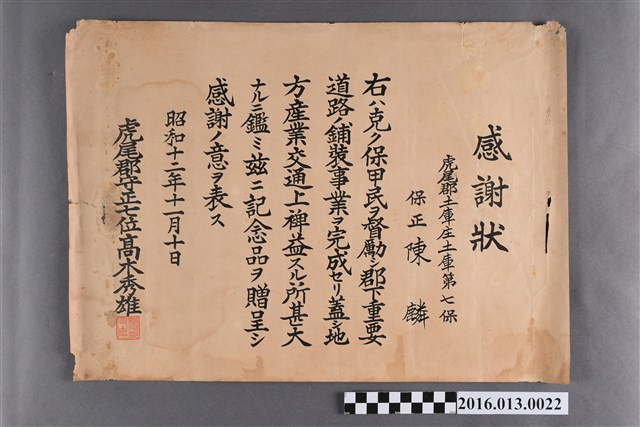 感謝狀
虎尾郡土庫庄土庫第七保
保正 陳 麟
右ハ克ク保甲民ヲ督勵シ郡下重要
道路ノ鋪裝事業ヲ完成セリ蓋シ地
方産業交通上裨益スル所甚大
ナルニ鑑ミ茲ニ記念品ヲ贈呈シ
感謝ノ意ヲ表ス
昭和十二年十一月十日
虎尾郡守正七位髙木秀雄
2016.013.0022